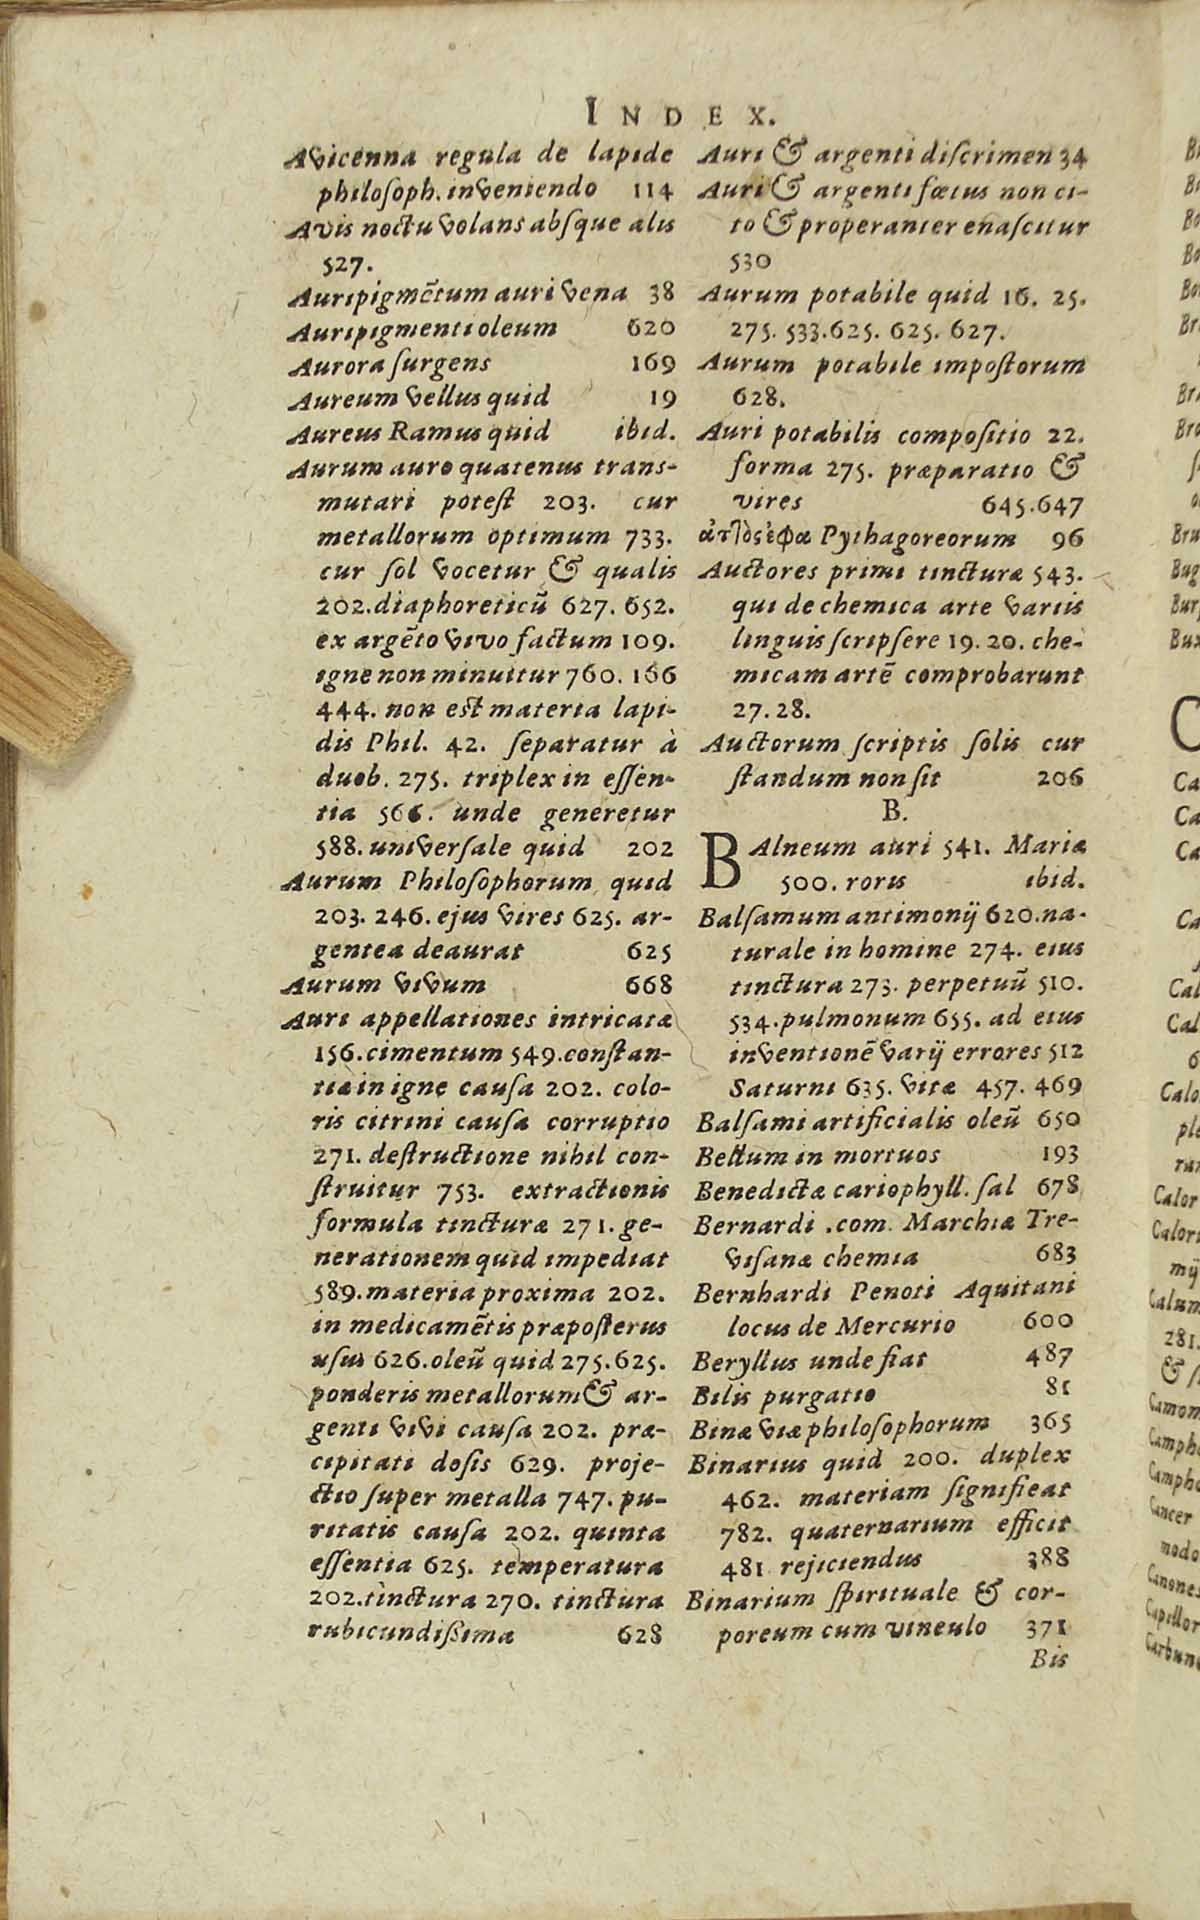 INDEX.
Avicenna regula de lapide
philosoph. inveniendo 114
Avis noctu volans absque alis
527.
Auripigmētum auri vena 38
Auripigmenti oleum 620
Aurora surgens 169
Aureum vellus quid 19
Aureus Ramus quid ibid.
Aurum auro quatenus trans-
mutari potest 203. cur
metallorum optimum 733.
cur sol vocetur & qualis
202. diaphoreticū 627. 652.
ex argēto vivo factum 109.
igne non minuitur 760. 166
444. non est materia lapi-
dis Phil. 42. separatur à
duob. 275. triplex in essen-
tia 566. unde generetur
588. universale quid 202
Aurum Philosophorum quid
203. 246. ejus vires 625. ar-
gentea deaurat 625
Aurum vivum 668
Auri appellationes intricatæ
156. cimentum 549. constan-
tiæ in igne causa 202. colo-
ris citrini causa corruptio
271. destructione nihil con-
struitur 753. extractionis
formula tincturæ 271. ge-
nerationem quid impediat
589. materia proxima 202.
in medicamētis præposterus
usus 626. oleū quid 275. 625.
ponderis metallorum & ar-
genti vivi causa 202. præ-
cipitati dosis 629. proje-
ctio super metalla 747. pu-
ritatis causa 202. quinta
essentia 625. temperatura
202. tinctura 270. tinctura
rubicundißima 628
Auri & argenti discrimen 34
Auri & argenti fœtus non ci-
to & properanter enascitur
530
Aurum potabile quid 16. 25.
275. 533. 625. 625. 627.
Aurum potabile impostorum
628.
Auri potabilis compositio 22.
forma 275. præparatio &
vires 645. 647
Pythagoreorum 96
Auctores primi tincturæ 543.
qui de chemica arte variis
linguis scripsere 19. 20. che-
micam artē comprobarunt
27. 28.
Auctorum scriptis solis cur
standum non sit 206
B.
BAlneum auri 541. Mariæ
500. roris ibid.
Balsamum antimonij 620. na-
turale in homine 274. eius
tinctura 273. perpetuū 510.
534. pulmonum 655. ad eius
inventionē varij errores 512
Saturni 635. vitæ 457. 469
Balsami artificialis oleū 650
Bellum in mortuos 193
Benedictæ cariophyll. sal 678
Bernardi .com. Marchiæ Tre-
visanæ chemia 683
Bernhardi Penoti Aquitani
locus de Mercurio 600
Beryllus unde fiat 487
Bilis purgatio 81
Binæ viæ philosophorum 365
Binarius quid 200. duplex
462. materiam significat
782. quaternarium efficit
481 rejiciendus 388
Binarium spirituale & cor-
poreum cum vinculo 371
Bis